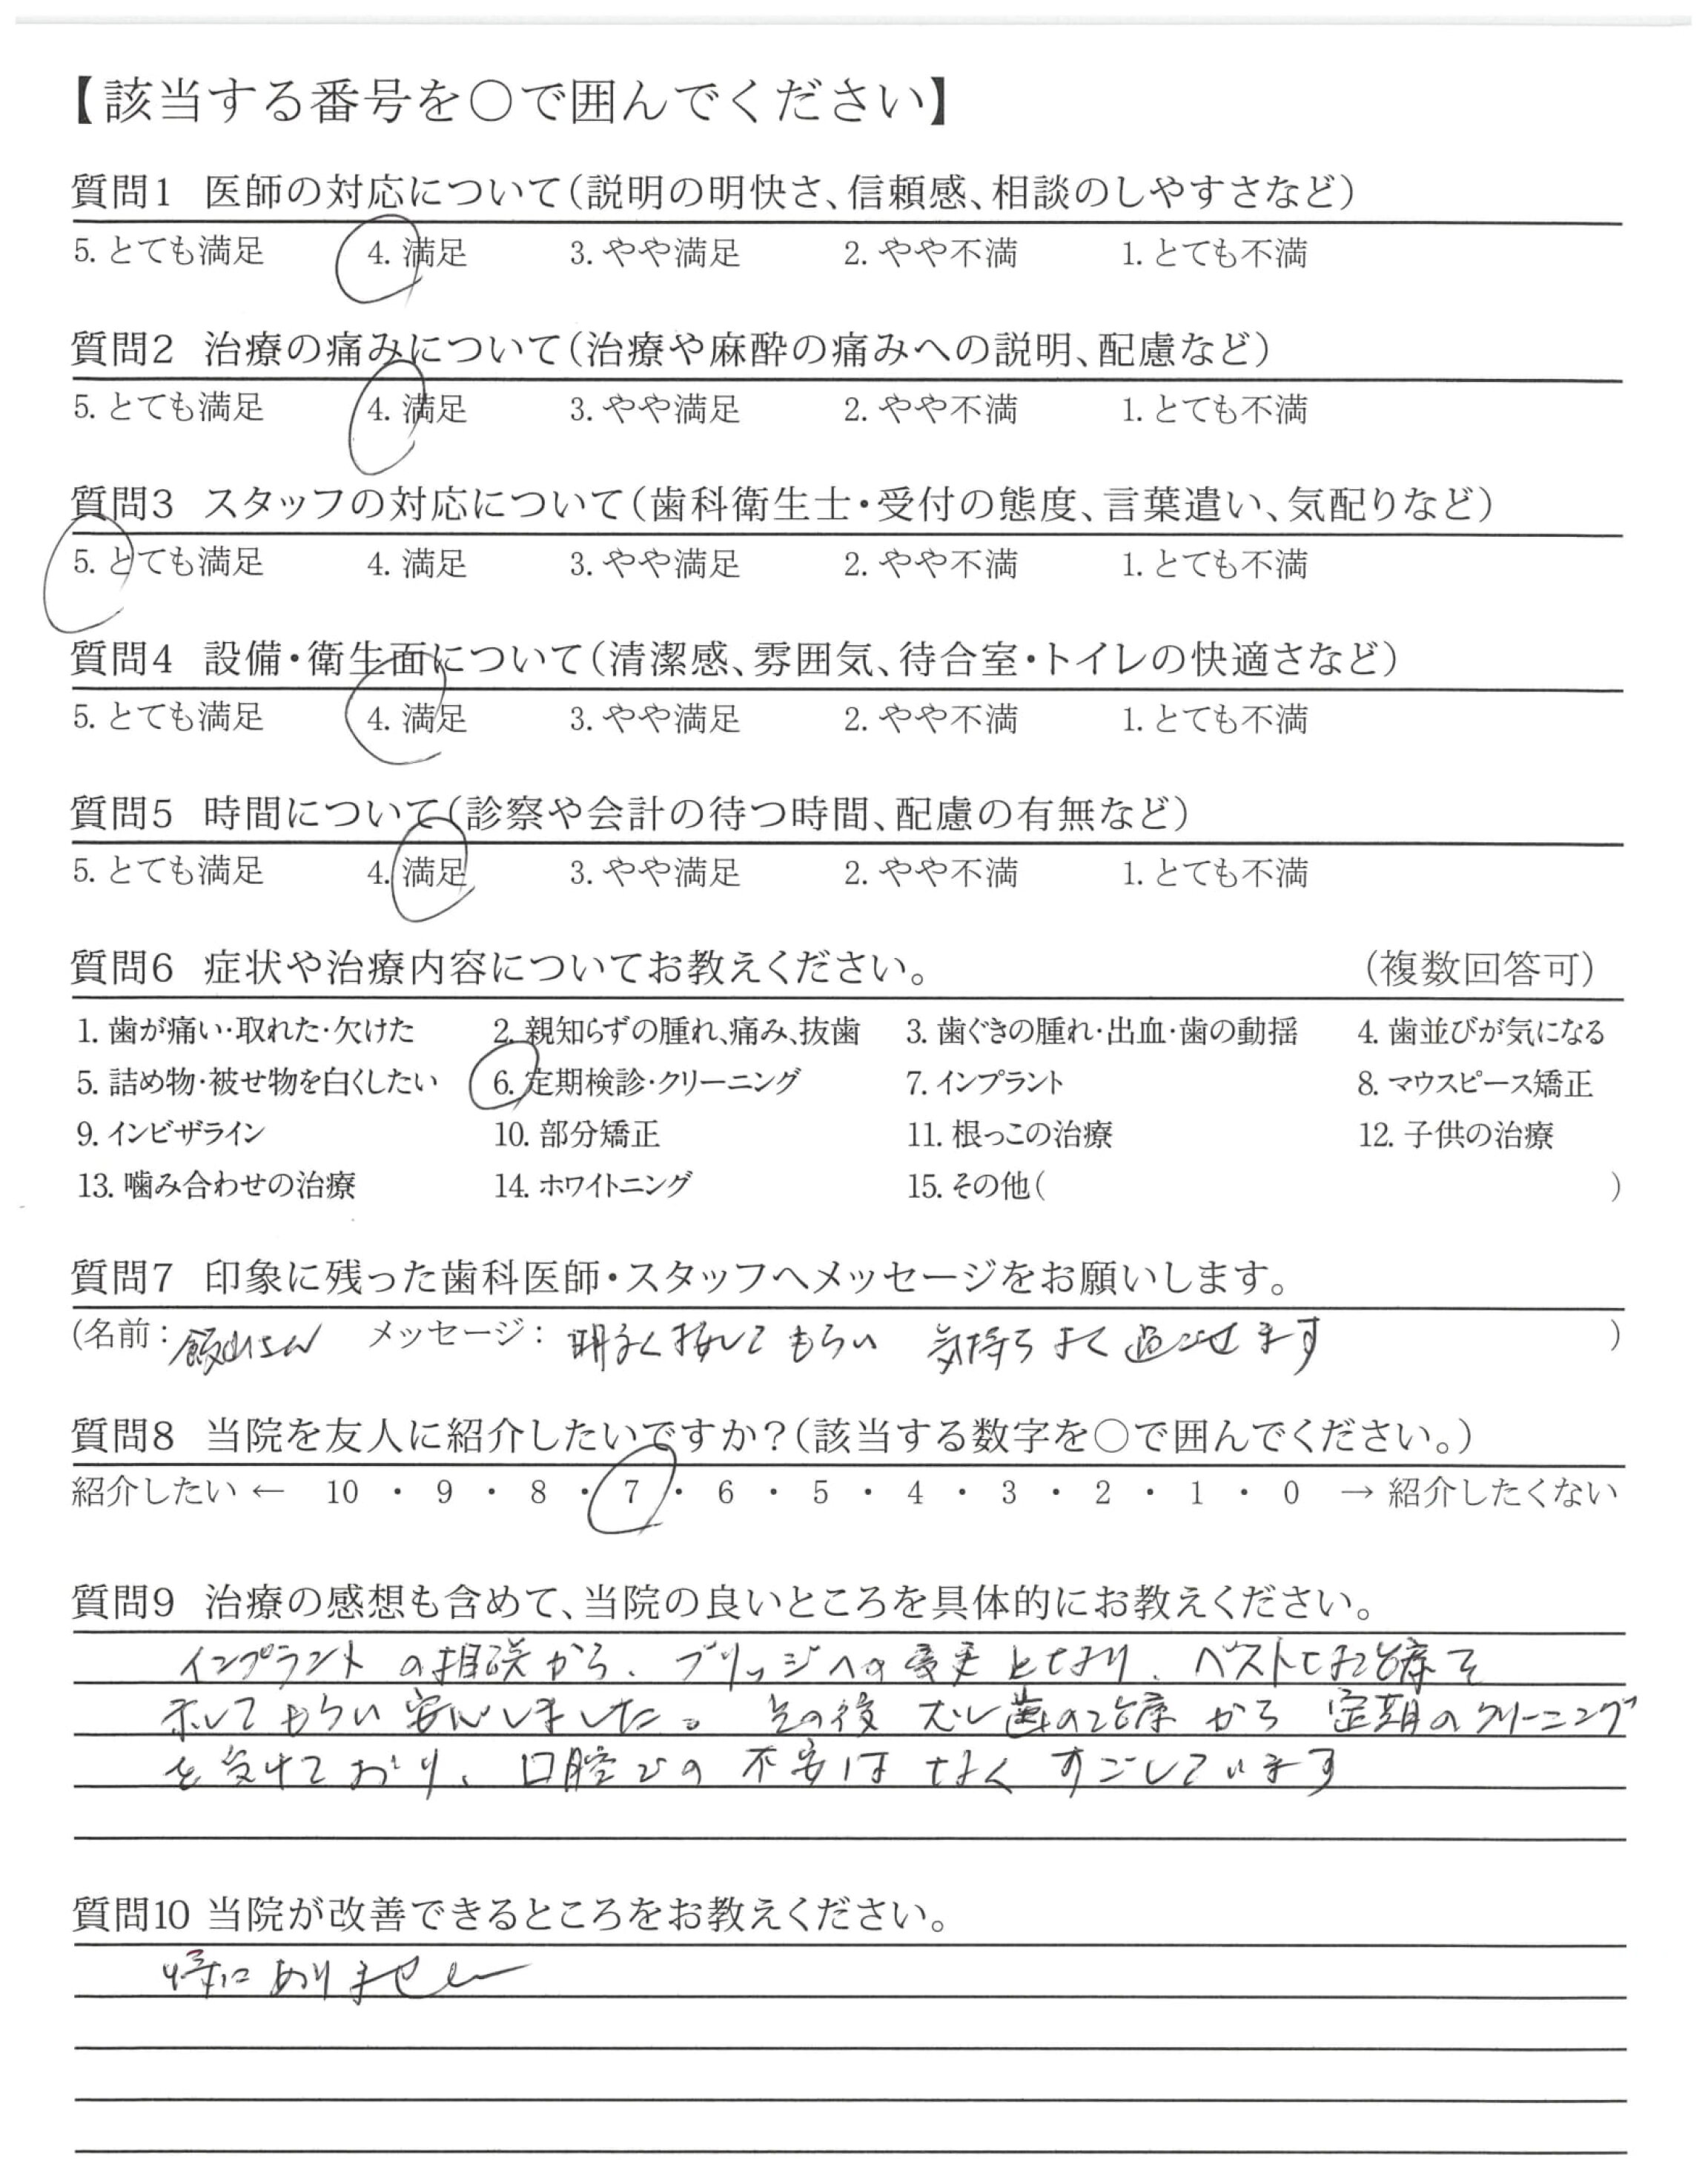 【該当する番号を○で囲んでください】
質問1 医師の対応について(説明の明快さ、信頼感、相談のしやすさなど)
5. とても満足 4. 満足 3. やや満足 2. やや不満 1. とても不満
質問2 治療の痛みについて(治療や麻酔の痛みへの説明、配慮など)
5. とても満足 4. 満足 3. やや満足 2. やや不満 1. とても不満
質問3 スタッフの対応について(歯科衛生士・受付の態度、言葉遣い、気配りなど)
5. とても満足 4. 満足 3. やや満足 2. やや不満 1. とても不満
質問4 設備・衛生面について(清潔感、雰囲気、待合室・トイレの快適さなど)
5. とても満足 4. 満足 3. やや満足 2. やや不満 1. とても不満
質問5 時間について(診察や会計の待つ時間、配慮の有無など)
5. とても満足 4. 満足 3. やや満足 2. やや不満 1. とても不満
質問6 症状や治療内容についてお教えください。 (複数回答可)
1. 歯が痛い・取れた・欠けた 2. 親知らずの腫れ、痛み、抜歯 3. 歯ぐきの腫れ・出血・歯の動揺 4. 歯並びが気になる
5. 詰め物・被せ物を白くしたい 6. 定期検診・クリーニング 7. インプラント 8. マウスピース矯正
9. インビザライン 10. 部分矯正 11. 根っこの治療 12. 子供の治療
13. 噛み合わせの治療 14. ホワイトニング 15. その他( )
質問7 印象に残った歯科医師・スタッフへメッセージをお願いします。
(名前: 飯山さん メッセージ: 明るく接してもらい 気持ちよく過ごせます )
質問8 当院を友人に紹介したいですか?(該当する数字を○で囲んでください。)
紹介したい ← 10 ・ 9 ・ 8 ・ 7 ・ 6 ・ 5 ・ 4 ・ 3 ・ 2 ・ 1 ・ 0 → 紹介したくない
質問9 治療の感想も含めて、当院の良いところを具体的にお教えください。
インプラントの相談から、ブリッジへの変更となり、ベストな治療を
示してもらい安心しました。その後 むし歯の治療から 定期のクリーニング
を受けており、口腔での不安はなくすごしています
質問10 当院が改善できるところをお教えください。
特にありません